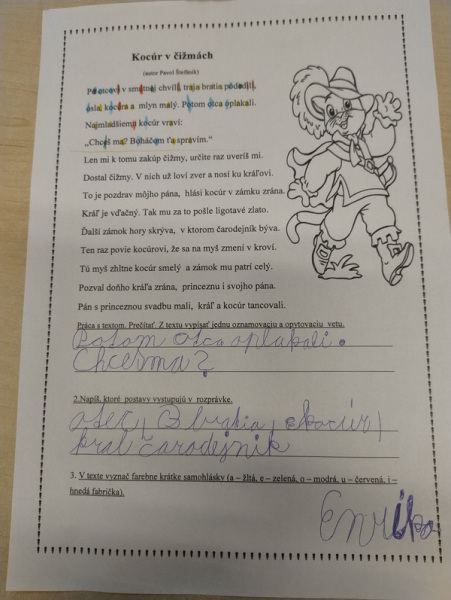 Kocúr v čižmách
(autor Pavol Štefánik)
Po otcovi v smutnej chvíli, traja bratia pododili,
osla, kocúra a mlyn malý. Potom otca oplakali.
Najmladšiemu kocúr vraví:
„Chceš ma? Boháčom ťa spravím."
Len mi k tomu zakúp čižmy, určite raz uveríš mi.
Dostal čižmy. V nich už loví zver a nosí ku kráľovi.
To je pozdrav môjho pána, hlási kocúr v zámku zrána.
Kráľ je vďačný. Tak mu za to pošle ligotavé zlato.
Ďalší zámok hory skrýva, v ktorom čarodejník býva.
Ten raz povie kocúrovi, že sa na myš zmení v kroví.
Tú myš zhltne kocúr smelý a zámok mu patrí celý.
Pozval doňho kráľa zrána, princeznu i svojho pána.
Pán s princeznou svadbu mali, kráľ a kocúr tancovali.
Práca s textom. Prečítať. Z textu vypísať jednu oznamovaciu a opytovaciu vetu.
Potom otca oplakali.
Chceš ma?
2.Napíš, ktoré postavy vystupujú v rozprávke.
otec, 3 bratia, kocúr,
kráľ čarodejník
3. V texte vyznač farebne krátke samohlásky (a – žltá, e – zelená, o – modrá, u – červená, i –
hnedá farbička).
Enrika